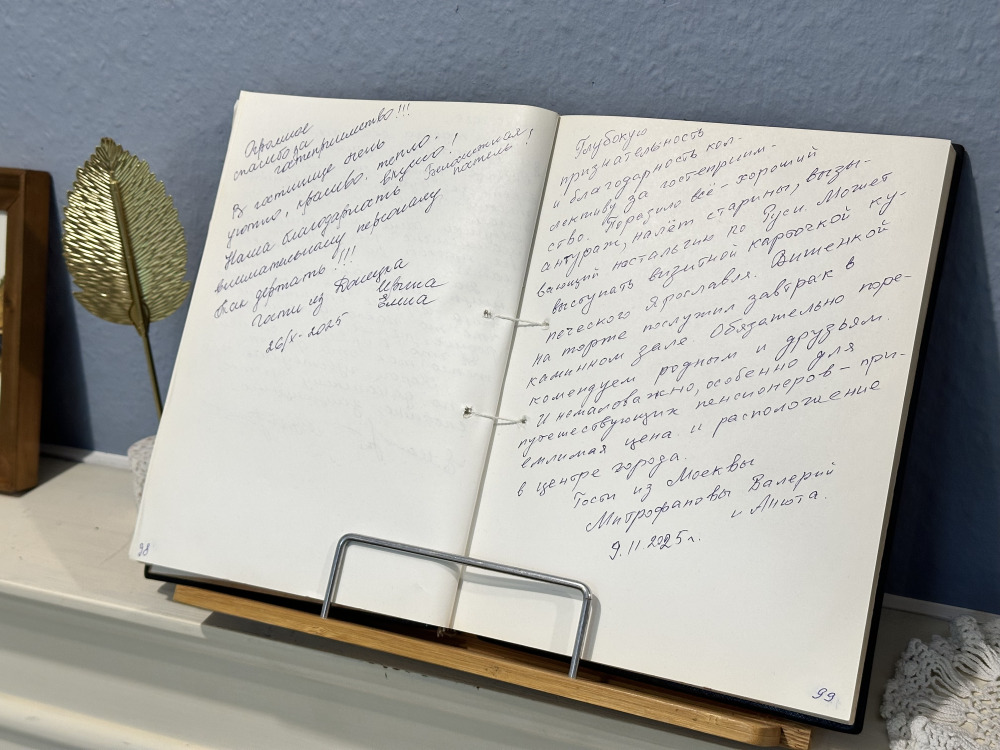 Огромное
спасибо за
гостеприимство!!!
В гостинице очень
уютно, красиво. тепло.
вкусно! Белоснежная
постель!
Наша благодарность
внимательному персоналу
Так держать!!!
Гости из Донецка
Ирина
Елена
26/X-2025
98
Глубокую
признательность
и благодарность кол-
лективу за гостеприим-
ство. Поразило всё - хороший
антураж, налёт старины, вызы-
вающий настальгию по Руси. Может
выступать визитной карточкой ку-
печеского Ярославля. Вишенкой
на торте послужил завтрак в
каминном зале. Обязательно поре-
комендуем родным и друзьям.
И немаловажно, особенно для
путешествующих пенсионеров - при-
емлимая цена и расположение
в центре города.
Гости из Москвы
Митрофановы Валерий
и Анюта.
9.11.2025г.
99